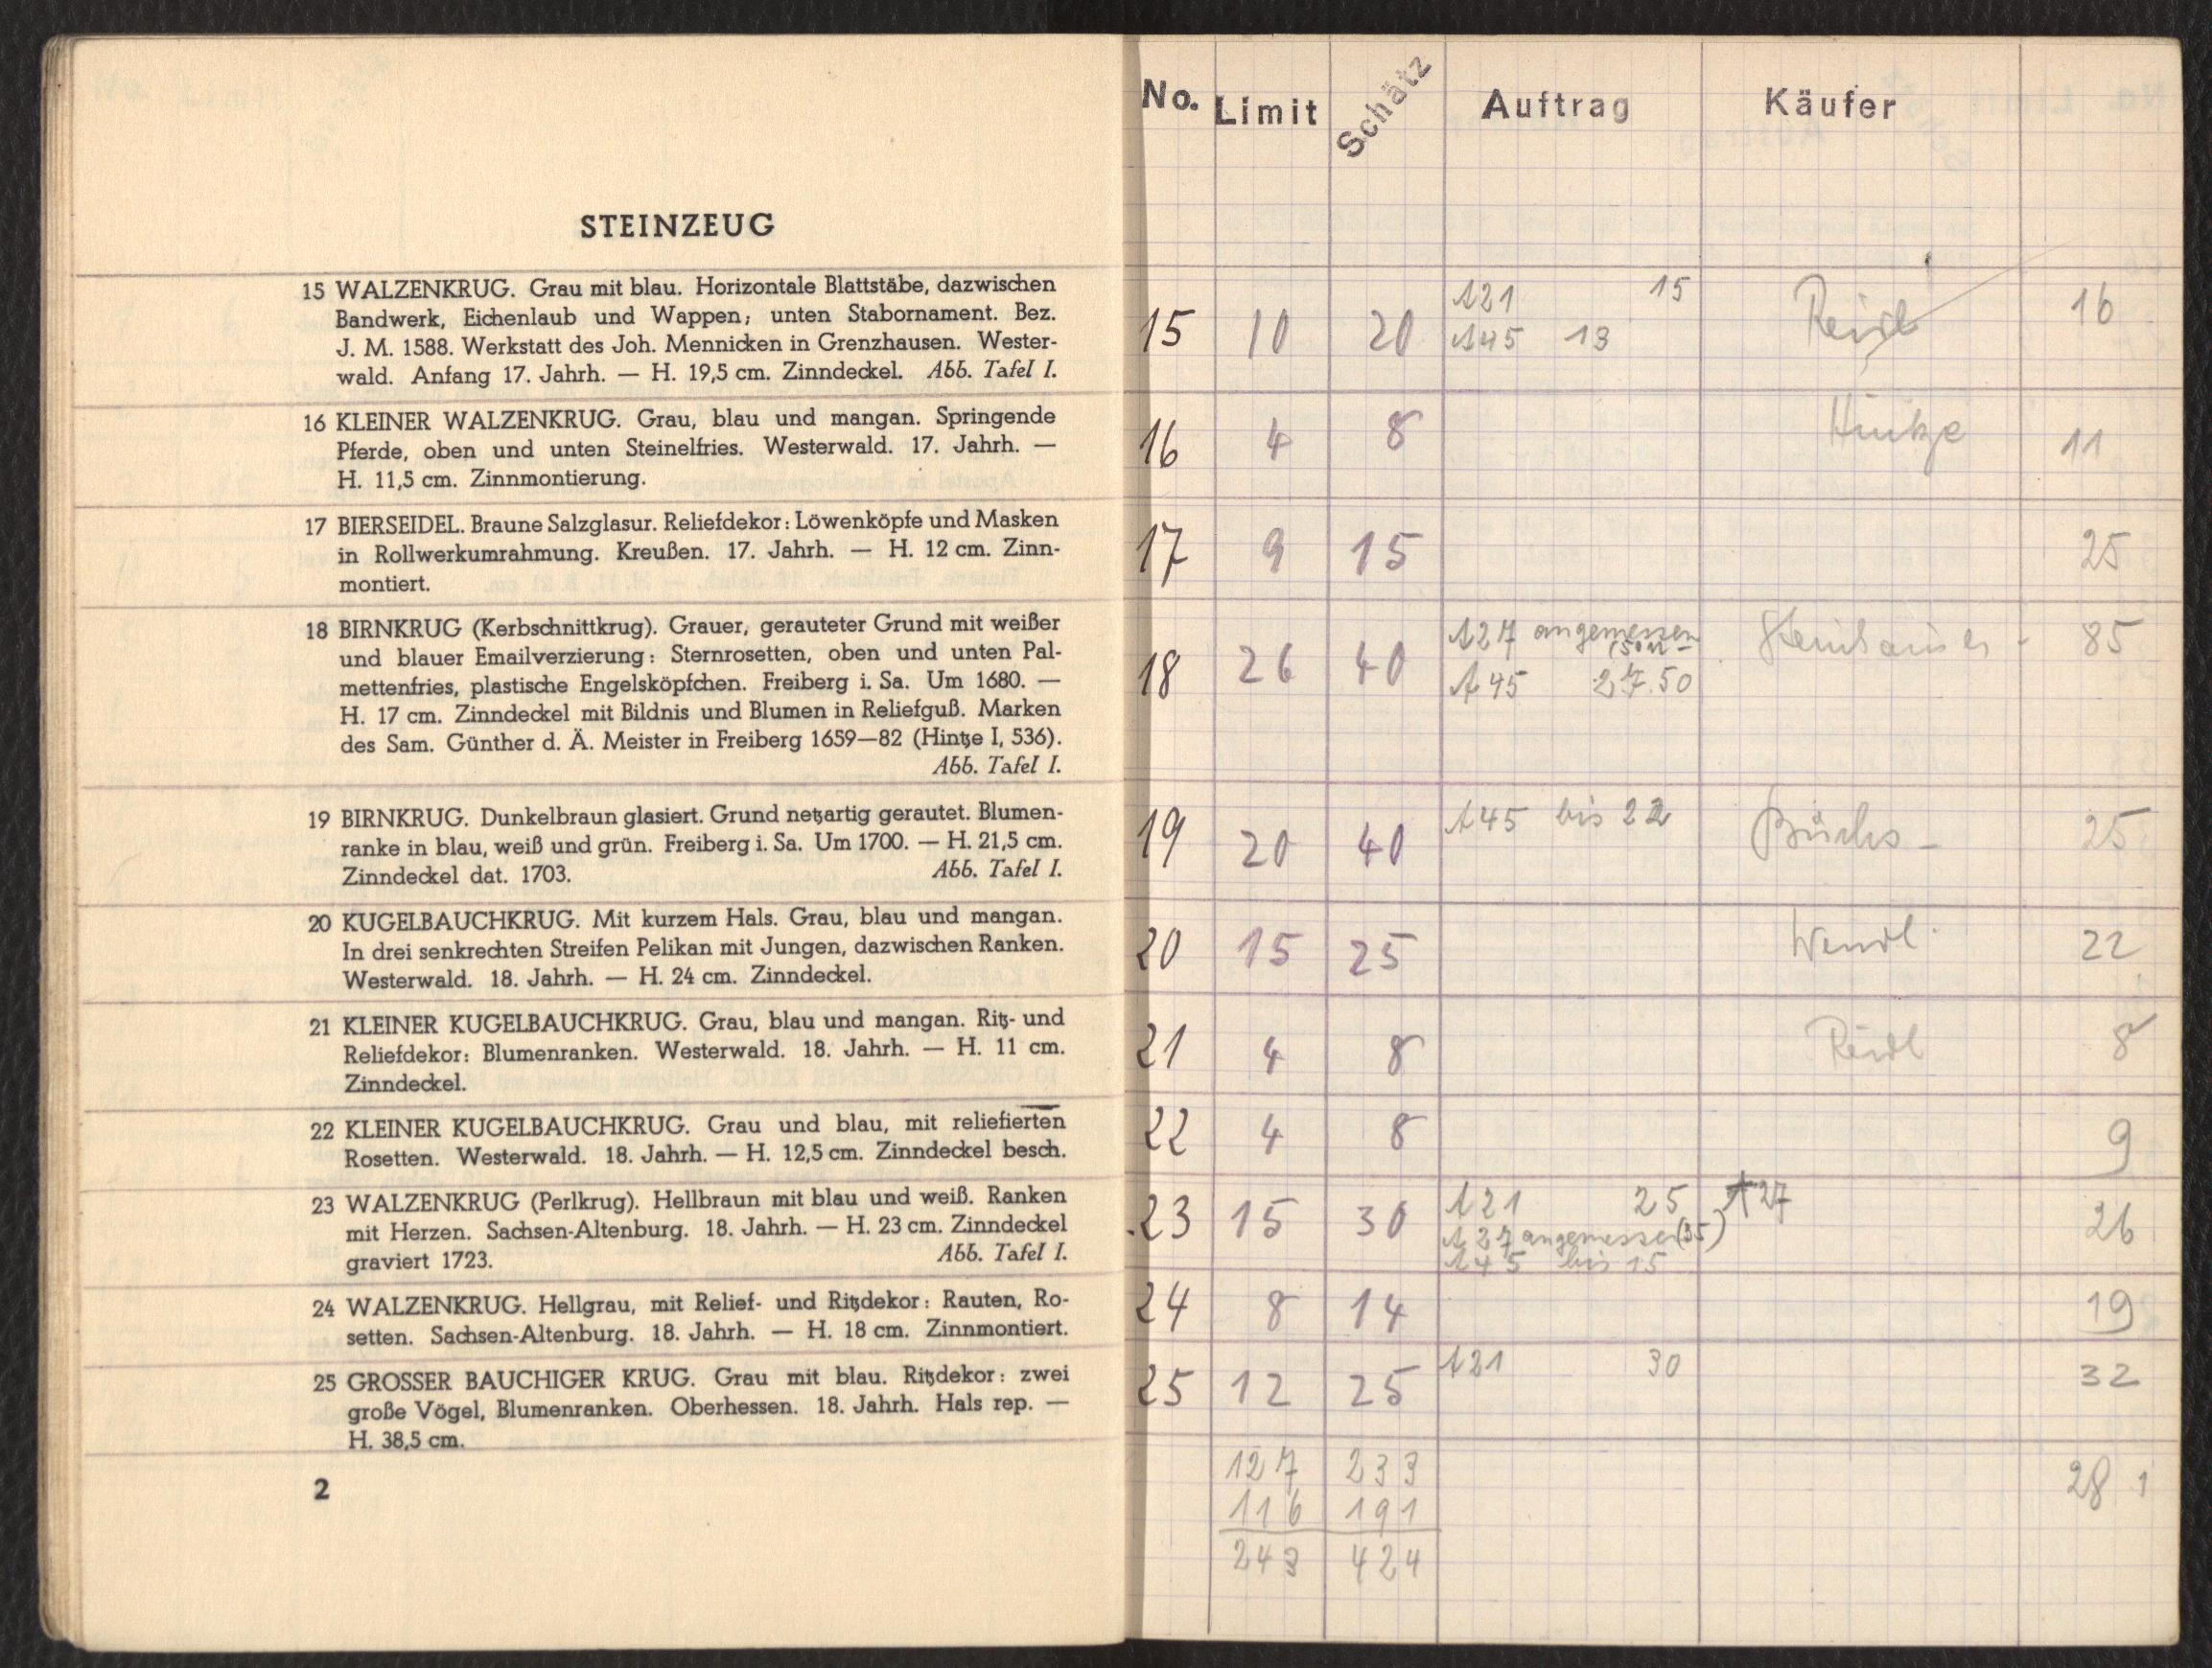 STEINZEUG
15 WALZENKRUG. Grau mit blau. Horizontale Blattstäbe, dazwischen
Bandwerk, Eichenlaub und Wappen; unten Stabornament. Bez.
J. M. 1588. Werkstatt des Joh. Mennicken in Grenzhausen. Wester-
wald. Anfang 17. Jahrh. — H. 19,5 cm. Zinndeckel. Abb. Tafel I.
16 KLEINER WALZENKRUG. Grau, blau und mangan. Springende
Pferde, oben und unten Steinelfries. Westerwald. 17. Jahrh. —
H. 11,5 cm. Zinnmontierung.
17 BIERSEIDEL. Braune Salzglasur. Reliefdekor: Löwenköpfe und Masken
in Rollwerkumrahmung. Kreußen. 17. Jahrh. — H. 12 cm. Zinn-
montiert.
18 BIRNKRUG (Kerbschnittkrug). Grauer, gerauteter Grund mit weißer
und blauer Emailverzierung: Sternrosetten, oben und unten Pal-
mettenfries, plastische Engelsköpfchen. Freiberg i. Sa. Um 1680. —
H. 17 cm. Zinndeckel mit Bildnis und Blumen in Reliefguß. Marken
des Sam. Günther d. Ä. Meister in Freiberg 1659—82 (Hintze I, 536).
Abb. Tafel I.
19 BIRNKRUG. Dunkelbraun glasiert. Grund netzartig gerautet. Blumen-
ranke in blau, weiß und grün. Freiberg i. Sa. Um 1700. — H. 21,5 cm.
Zinndeckel dat. 1703. Abb. Tafel I.
20 KUGELBAUCHKRUG. Mit kurzem Hals. Grau, blau und mangan.
In drei senkrechten Streifen Pelikan mit Jungen, dazwischen Ranken.
Westerwald. 18. Jahrh. — H. 24 cm. Zinndeckel.
21 KLEINER KUGELBAUCHKRUG. Grau, blau und mangan. Ritz- und
Reliefdekor: Blumenranken. Westerwald. 18. Jahrh. — H. 11 cm.
Zinndeckel.
22 KLEINER KUGELBAUCHKRUG. Grau und blau, mit reliefierten
Rosetten. Westerwald. 18. Jahrh. — H. 12,5 cm. Zinndeckel besch.
23 WALZENKRUG (Perlkrug). Hellbraun mit blau und weiß. Ranken
mit Herzen. Sachsen-Altenburg. 18. Jahrh. — H. 23 cm. Zinndeckel
graviert 1723. Abb. Tafel I.
24 WALZENKRUG. Hellgrau, mit Relief- und Ritzdekor: Rauten, Ro-
setten. Sachsen-Altenburg. 18. Jahrh. — H. 18 cm. Zinnmontiert.
25 GROSSER BAUCHIGER KRUG. Grau mit blau. Ritzdekor: zwei
große Vögel, Blumenranken. Oberhessen. 18. Jahrh. Hals rep. —
H. 38,5 cm.
2
No. Limit Schätz Auftrag Käufer
A21 15
15 10 20 A45 13 Reidl 16
16 4 8 Hintze 11
17 9 15 25
A27 angemessen
18 26 40 85
A45 27.50
19 20 40 A45 bis 22 25
20 15 25 Wendl 22
21 4 8 Reidl 8
22 4 8 9
A21 25 A27
23 15 30 A27 angemessen (35) 26
A45 bis 15
24 8 14 19
25 12 25 A21 30 32
127 233 281
116 191
243 424